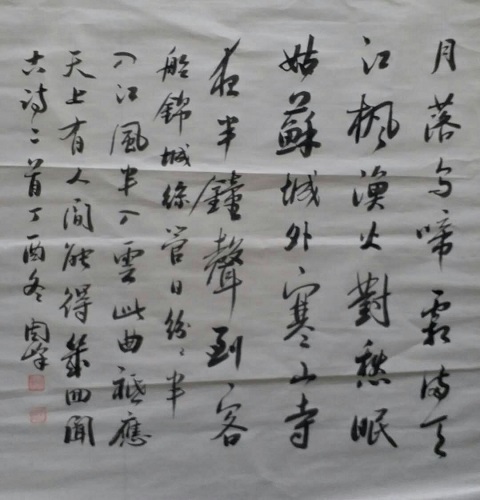 月落乌啼霜满天
江枫渔火對愁眠
姑蘇城外寒山寺
夜半鐘聲到客
船錦城絲管日紛〻半
入江風半入雲此曲祗應
天上有人间能得幾回聞
古诗二首丁酉冬国峰